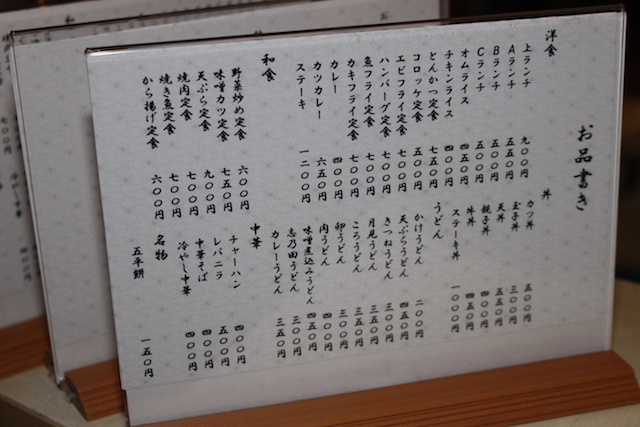 お品書き
洋食
上ランチ 九〇〇円
Aランチ 五五〇円
Bランチ 五五〇円
Cランチ 五〇〇円
オムライス 四〇〇円
チキンライス 四〇〇円
とんかつ定食 七五〇円
コロッケ定食 五〇〇円
エビフライ定食 七〇〇円
ハンバーグ定食 七〇〇円
魚フライ定食 七〇〇円
カキフライ定食 七〇〇円
カレー 四〇〇円
カツカレー 六五〇円
ステーキ 一二〇〇円
和食
野菜炒め定食 六〇〇円
味噌カツ定食 七五〇円
天ぷら定食 九〇〇円
焼肉定食 七〇〇円
焼き魚定食 七〇〇円
から揚げ定食 六〇〇円
丼
カツ丼 五〇〇円
玉子丼 三〇〇円
天丼 五五〇円
親子丼 四五〇円
牛丼 四五〇円
ステーキ丼 一〇〇〇円
うどん
かけうどん 二〇〇円
天ぷらうどん 四五〇円
きつねうどん 三〇〇円
月見うどん 三五〇円
ころうどん 三五〇円
卯うどん 三〇〇円
肉うどん 四〇〇円
味噌煮込みうどん 四五〇円
志乃田うどん 三〇〇円
カレーうどん 三五〇円
中華
チャーハン 四〇〇円
レバニラ 五〇〇円
中華そば 四〇〇円
冷やし中華 四〇〇円
名物
五平餅 一五〇円